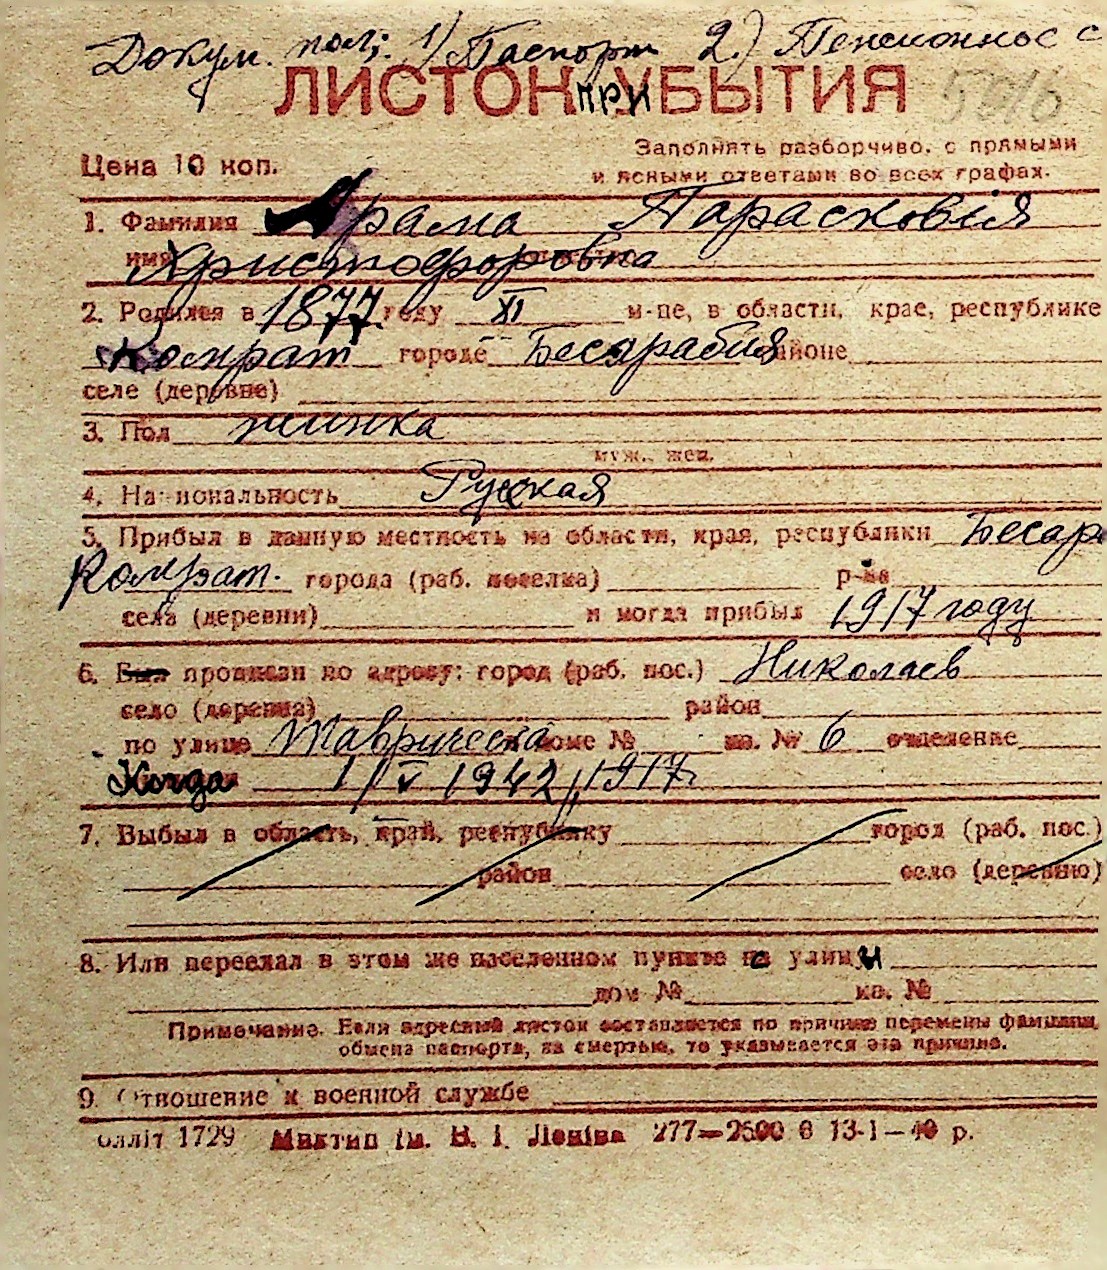 Докум. пол; 1) Паспорт 2.) Пенсионное с
ЛИСТОК при УБЫТИЯ
Цена 10 коп.
Заполнять разборчиво, с прямыми
и ясными ответами во всех графах.
1. Фамилия Арама Парасковія
имя Христофоровна
2. Родился в 1877 году XI м-це, в области, крае, республике
Комрат городе Бесарабия районе
селе (деревне)
3. Пол жинка
муж., жен.
4. Национальность Русская
5. Прибыл в данную местность из области, края, республики Бесара
Комрат. города (раб. поселка) р-на
села (деревни) и когда прибыл 1917 году
6. Был прописан по адресу: город (раб. пос.) Николаев
село (деревня) район
по улице Таврическа доме № кв. № 6 отделение
Когда 1/V 1942 1917
7. Выбыл в область, край, республику город (раб. пос.)
район село (деревню)
8. Или переехал в этом же населенном пункте с улицы
дом № кв. №
Примечание. Если адресный листок составляется по причине перемены фамилии,
обмена паспорта, за смертью, то указывается эта причина.
9. Отношение к военной службе
блліт 1729 Миктип ім. В. І. Леніна 277—2500 6 13-1—40 р.